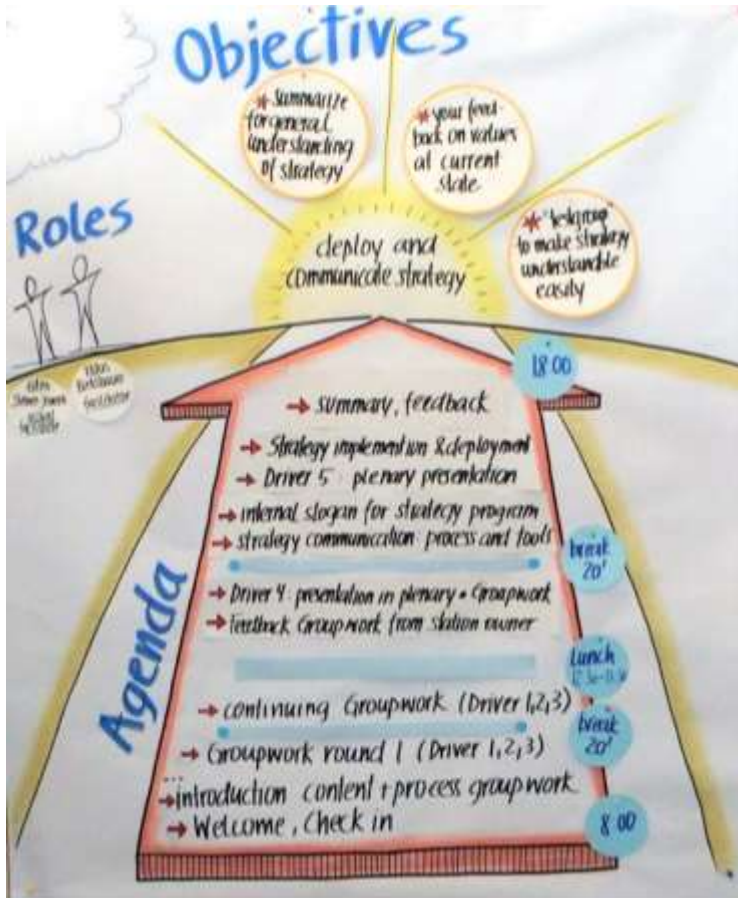 Objectives
* summarize
for general
understanding
of strategy
* your feed-
back on values
at current
state
to make strategy
understandable
easily
deploy and
communicate strategy
Roles
18.00
→ summary, feedback
→ Strategy implemention & deployment
→ Driver 5 plenary presentation
→ internal slogan for strategy program
→ strategy communication process and tools
break
20'
→ Driver 4 presentation in plenary + Groupwork
→ Feedback Groupwork from station owner
Lunch
→ continuing Groupwork (Driver 1,2,3)
break
20'
→ Groupwork round 1 (Driver 1,2,3)
→ introduction content + process groupwork
→ Welcome, Check in
8.00
Agenda